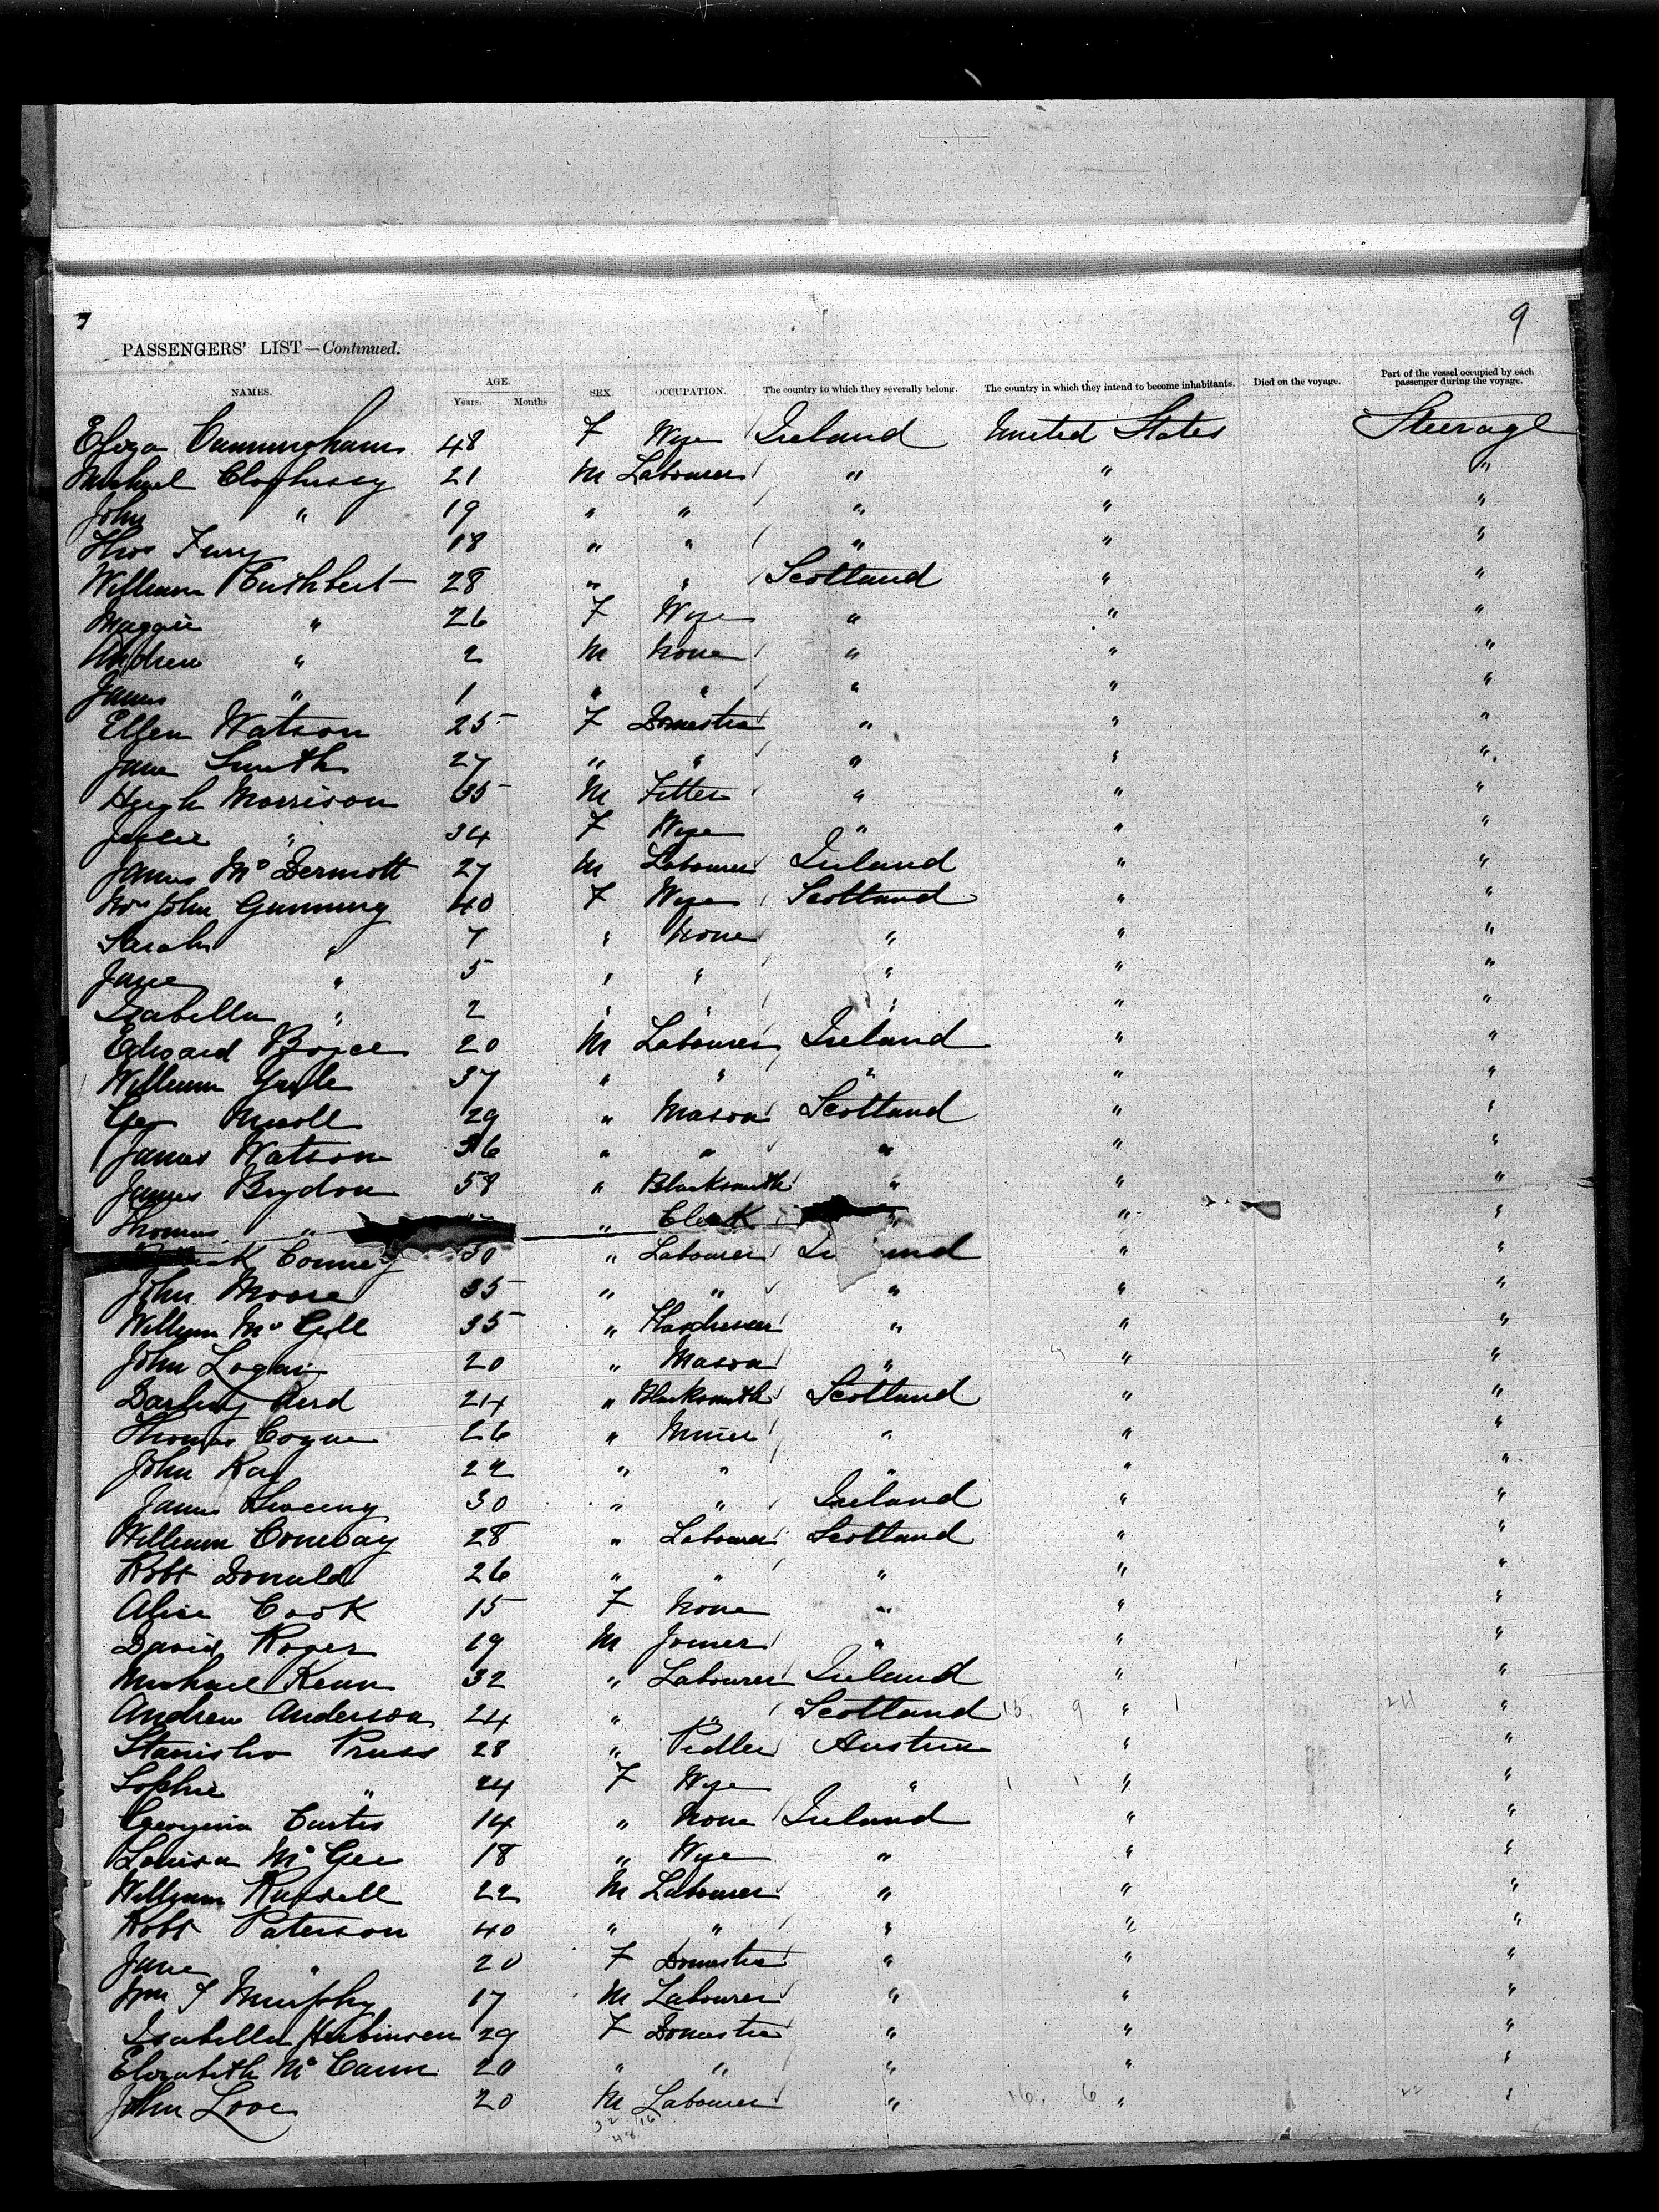 9
PASSENGERS' LIST—Continued.
NAMES. AGE. Years. Months SEX. OCCUPATION. The country to which they severally belong. The country in which they intend to become inhabitants. Died on the voyage. Part of the vessel occupied by each passenger during the voyage.
Eliza Cunningham 48 F Wife Ireland United States Steerage
Michael Clophessy 21 M Labourer " " "
John " 19 " " " " "
Thos Fury 18 " " " " "
William Cuthbert 28 " " Scotland " "
Maggie " 26 F Wife " " "
Andrew " 2 M None " " "
James " 1 " " " " "
Ellen Watson 25 F Domestic " " "
Jane Smith 27 " " " " "
Hugh Morrison 35 M Fitter " " "
Jessie " 34 F Wife " " "
James McDermott 27 M Labourer Ireland " "
Mrs John Gunning 40 F Wife Scotland " "
Sarah " 7 " None " " "
Jane " 5 " " " " "
Isabella " 2 " " " " "
Edward Boyce 20 M Labourer Ireland " "
William Yuile 37 " " " " "
Geo Nicoll 29 " Mason Scotland " "
James Watson 36 " " " " "
James Brydon 58 " Blacksmith " " "
Thomas " " Clerk " " "
Conney 30 " Labourer " "
John Moore 35 " " " " "
William McGill 35 " " " "
John Logan 20 " Mason " " "
Darling Reid 24 " Blacksmith Scotland " "
Thomas Coyne 26 " Miner " " "
John Kay 22 " " " " "
James Sweeny 30 " " Ireland " "
William Conway 28 " Labourer Scotland " "
Robt Donald 26 " " " " "
Alice Cook 15 F None " " "
David Roper 19 M Joiner " " "
Michael Kenn 32 " Labourer Ireland " "
Andrew Anderson 24 " " Scotland 15. 9 " 1 24 "
Stanislao Pruss 28 " Pedler Austria " "
Sophie " 24 F Wife " " "
Georgina Curtis 14 " None Ireland " "
Louisa McGee 18 " Wife " " "
William Russell 22 M Labourer " " "
Robt Paterson 40 " " " " "
Jane " 20 F Domestic " " "
Wm J Murphy 17 M Labourer " " "
Isabella Hubinsen 29 F Domestic " " "
Elizabeth McCann 20 " " " " "
John Love 20 M Labourer " 16. 6 " 22 "
32 16
48